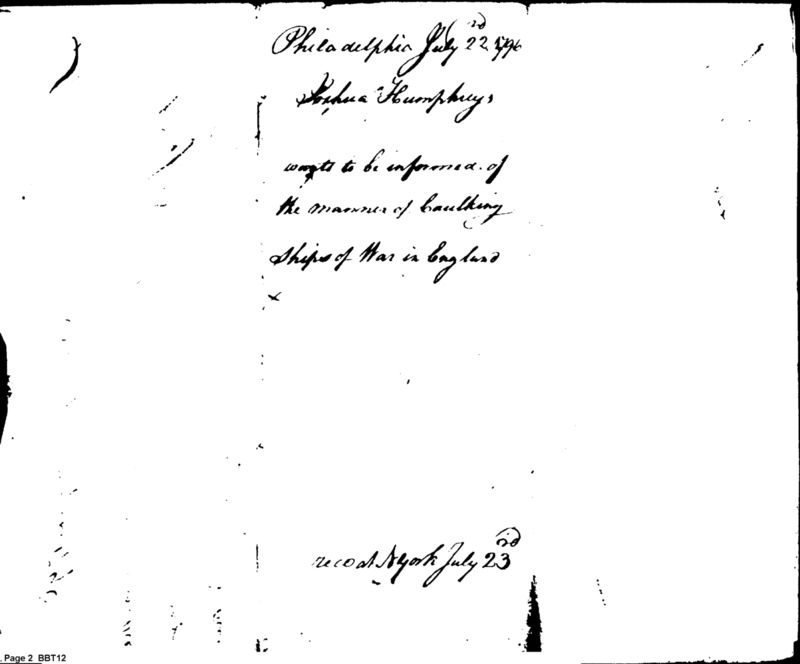 Philadelphia July 22nd 1796
Joshua Humphreys
wants to be informed of
the manner of Caulking
Ships of War in England
recd at NYork July 23rd
. Page 2 BBT12